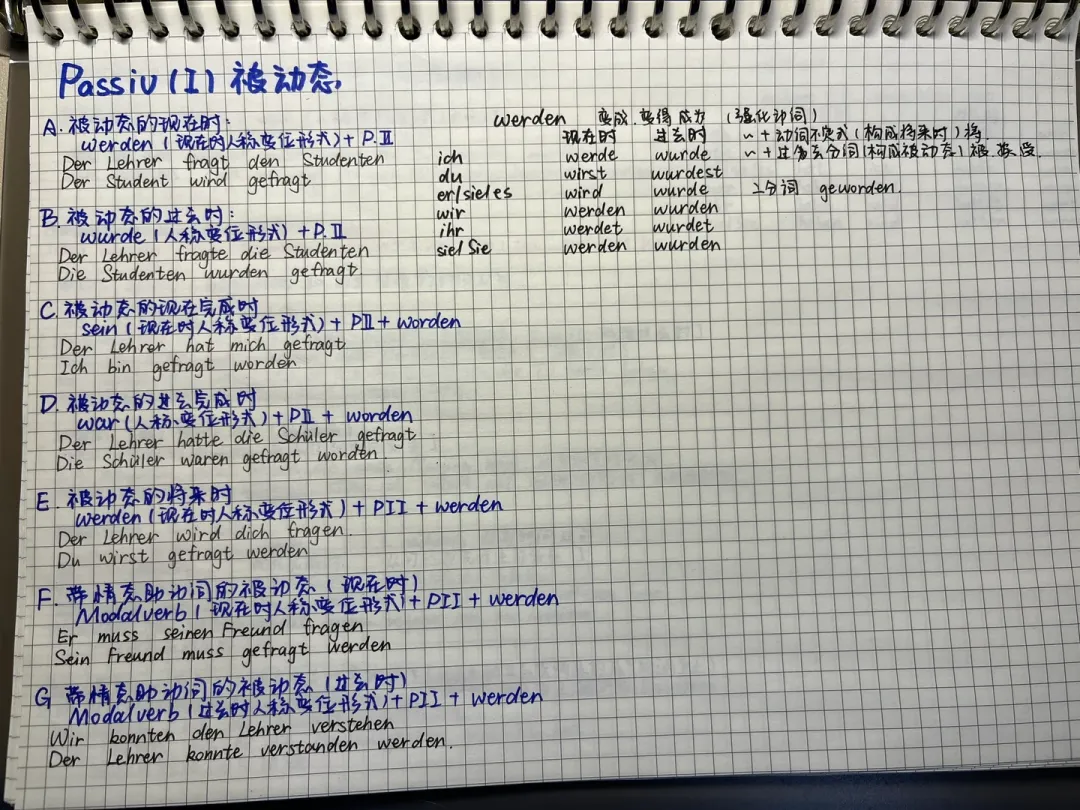 Passiv (I) 被动态
A. 被动态的现在时:
werden (现在时人称变位形式) + P.II
Der Lehrer fragt den Studenten
Der Student wird gefragt
B. 被动态的过去时:
wurde (人称变位形式) + P.II
Der Lehrer fragte die Studenten
Die Studenten wurden gefragt
C. 被动态的现在完成时
sein (现在时人称变位形式) + PII + worden
Der Lehrer hat mich gefragt
Ich bin gefragt worden
D. 被动态的过去完成时
war (人称变位形式) + PII + worden
Der Lehrer hatte die Schüler gefragt
Die Schüler waren gefragt worden
E. 被动态的将来时
werden (现在时人称变位形式) + PII + werden
Der Lehrer wird dich fragen.
Du wirst gefragt werden
F. 带情态助动词的被动态 (现在时)
Modalverb (现在时人称变位形式) + PII + werden
Er muss seinen Freund fragen
Sein Freund muss gefragt werden
G 带情态助动词的被动态 (过去时)
Modalverb (过去时人称变位形式) + PII + werden
Wir konnten den Lehrer verstehen
Der Lehrer konnte verstanden werden.
werden 变成 变得 成为 (强化动词)
现在时 过去时 ~ + 动词不定式 (构成将来时) 将
ich werde wurde ~ + 过去分词 (构成被动态) 被 受
du wirst wurdest
er/sie/es wird wurde 二分词 geworden.
wir werden wurden
ihr werdet wurdet
sie/Sie werden wurden